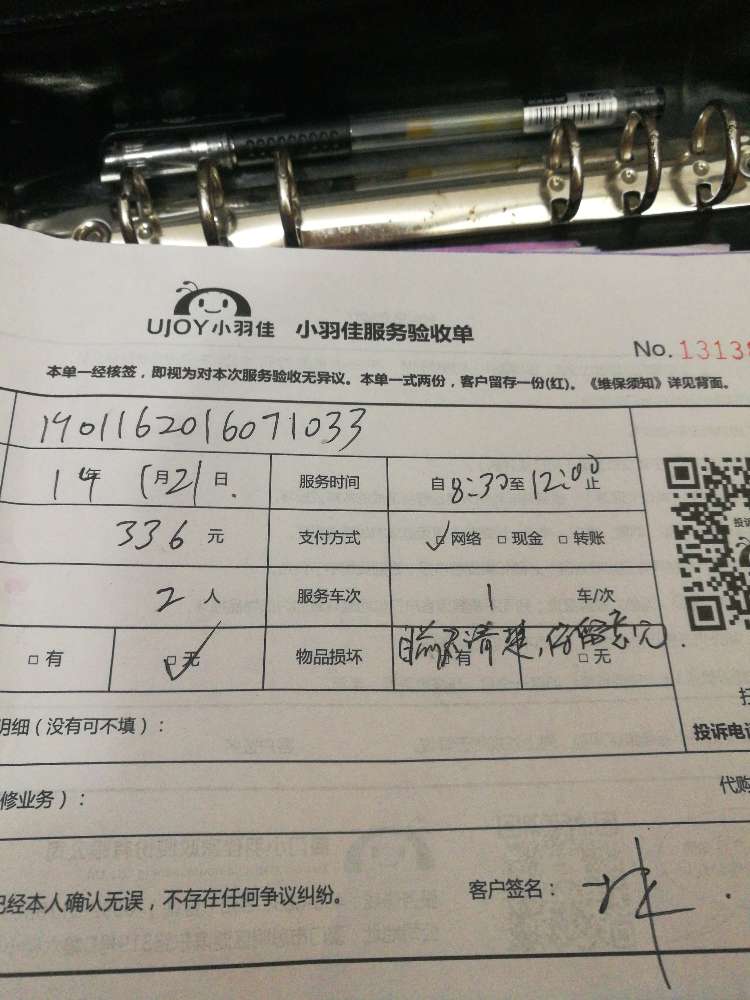 UJOY小羽佳 小羽佳服务验收单
No. 1313
本单一经核签，即视为对本次服务验收无异议。本单一式两份，客户留存一份(红)。《维保须知》详见背面。
1901162016071033
19年 1月21日. 服务时间 自8:30至12:00止
336元 支付方式 ✓□网络 □现金 □转账
2人 服务车次 1 车/次
□有 □无 ✓ 物品损坏 目前不清楚，保留意见. □有 □无
明细（没有可不填）：
投诉电
修业务）： 代购
已经本人确认无误，不存在任何争议纠纷。 客户签名：